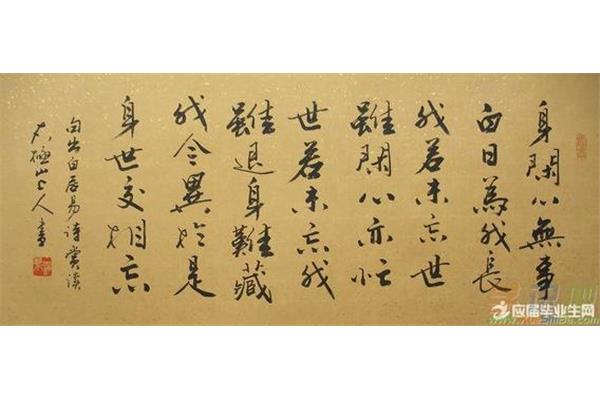 身閑心無事
白日為我長
我若未忘世
雖閑心亦忙
世若未忘我
雖退身難藏
我今異於是
身世交相忘
句出白居易詩賞淡
太極山上人書
应届毕业生网